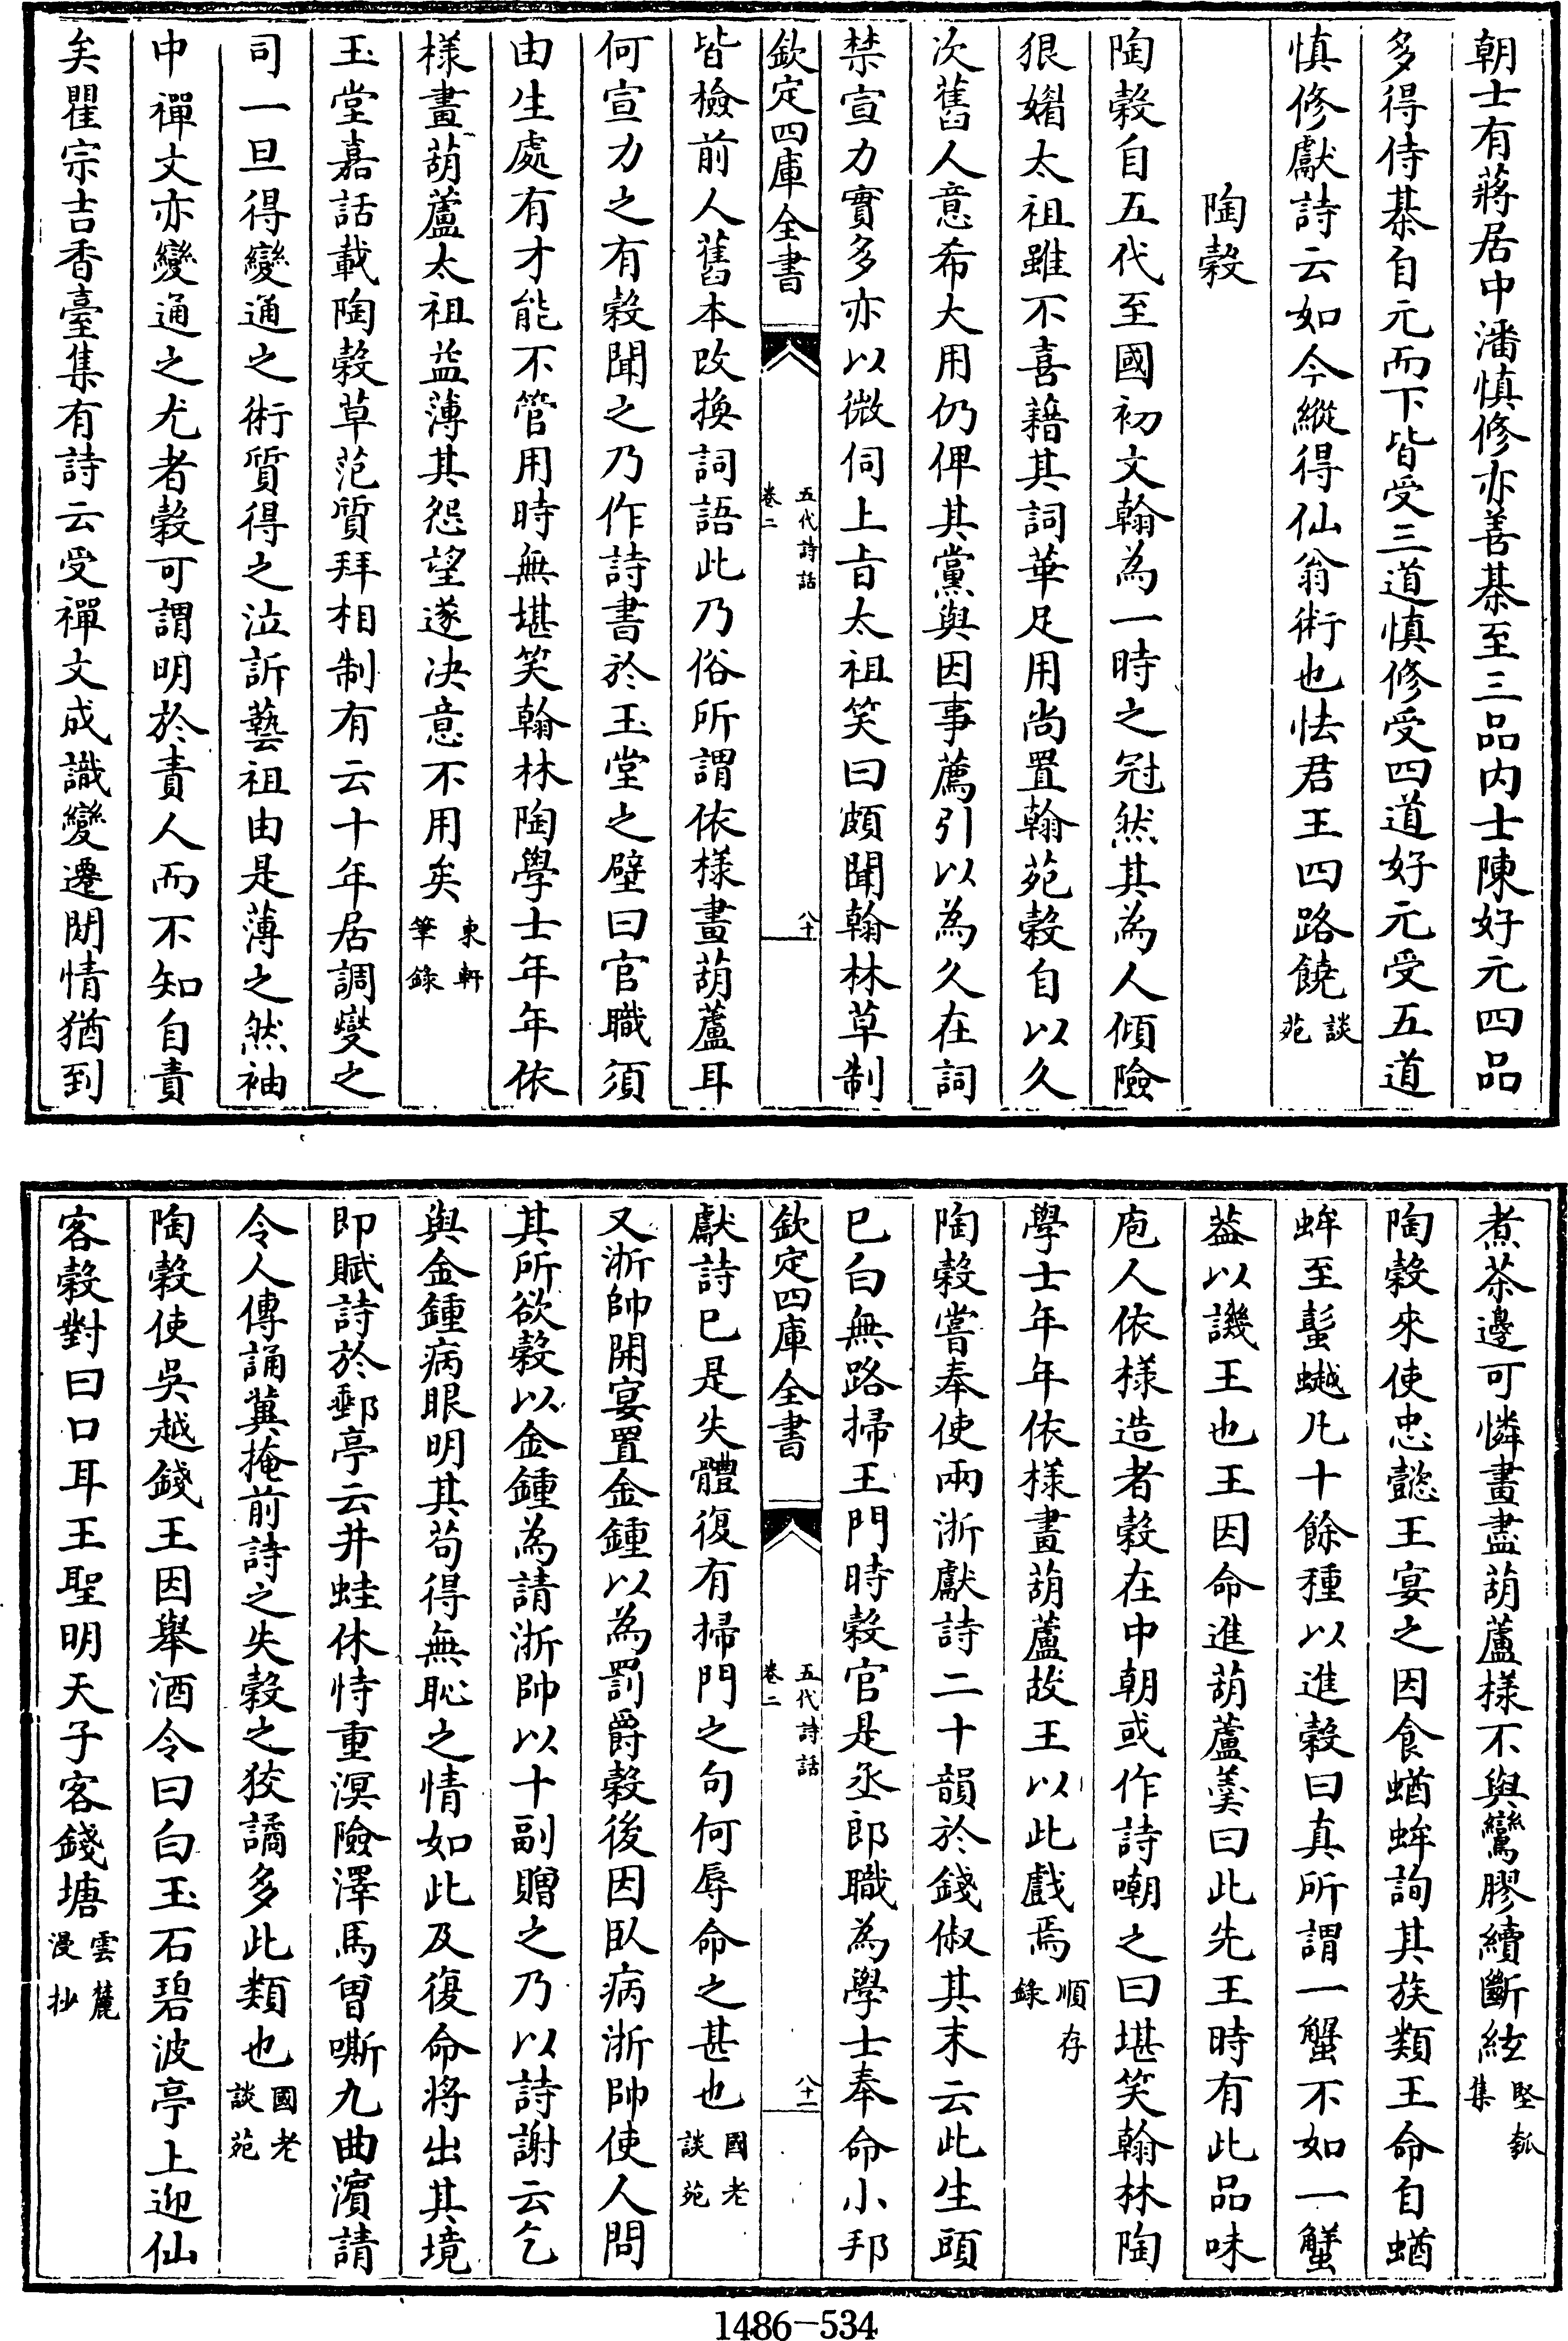 朝士有蔣居中潘慎修亦善棊至三品内士陳好元四品
多得侍棊自元而下皆受三道慎修受四道好元受五道
慎修獻詩云如今縱得仙翁術也怯君王四路饒談苑
陶穀
陶穀自五代至國初文翰為一時之冠然其為人傾險
狠媢太祖雖不喜藉其詞華足用尚置翰苑穀自以久
次舊人意希大用仍俾其黨與因事薦引以為久在詞
禁宣力實多亦以微伺上旨太祖笑曰頗聞翰林草制
欽定四庫全書 五代詩話卷二 八十
皆檢前人舊本改換詞語此乃俗所謂依樣畫葫蘆耳
何宣力之有穀聞之乃作詩書於玉堂之壁曰官職須
由生處有才能不管用時無堪笑翰林陶學士年年依
様畫葫蘆太祖益薄其怨望遂决意不用矣東軒筆錄
玉堂嘉話載陶穀草范質拜相制有云十年居調爕之
司一旦得變通之術質得之泣訴藝祖由是薄之然袖
中禪文亦變通之尤者穀可謂明於責人而不知自責
矣瞿宗吉香臺集有詩云受禪文成識變遷閒情猶到
煮茶邊可憐畫盡葫蘆樣不與鸞膠續斷絃堅瓠集
陶穀來使忠懿王宴之因食蝤蛑詢其族類王命自蝤
蛑至蟚蟣凡十餘種以進穀曰真所謂一蟹不如一蟹
葢以譏王也王因命進葫蘆羹曰此先王時有此品味
庖人依樣造者穀在中朝或作詩嘲之曰堪笑翰林陶
學士年年依樣畫葫蘆故王以此戲焉順存錄
陶穀嘗奉使兩浙獻詩二十韻於錢俶其末云此生頭
已白無路掃王門時穀官是丞郎職為學士奉命小邦
欽定四庫全書 五代詩話卷二 八十一
獻詩已是失體復有掃門之句何辱命之甚也國老談苑
又浙帥開宴置金鍾以為罰爵穀後因臥病浙帥使人問
其所欲穀以金鍾為請浙帥以十副贈之乃以詩謝云乞
與金鍾病眼明其苟得無恥之情如此及復命将出其境
即賦詩於郵亭云井蛙休恃重溟險澤馬曾嘶九曲濵請
令人傳誦冀掩前詩之失穀之狡譎多此類也國老談苑
陶穀使吳越錢王因舉酒令曰白玉石碧波亭上迎仙
客穀對曰口耳王聖明天子客錢塘雲麓漫抄
1486-534